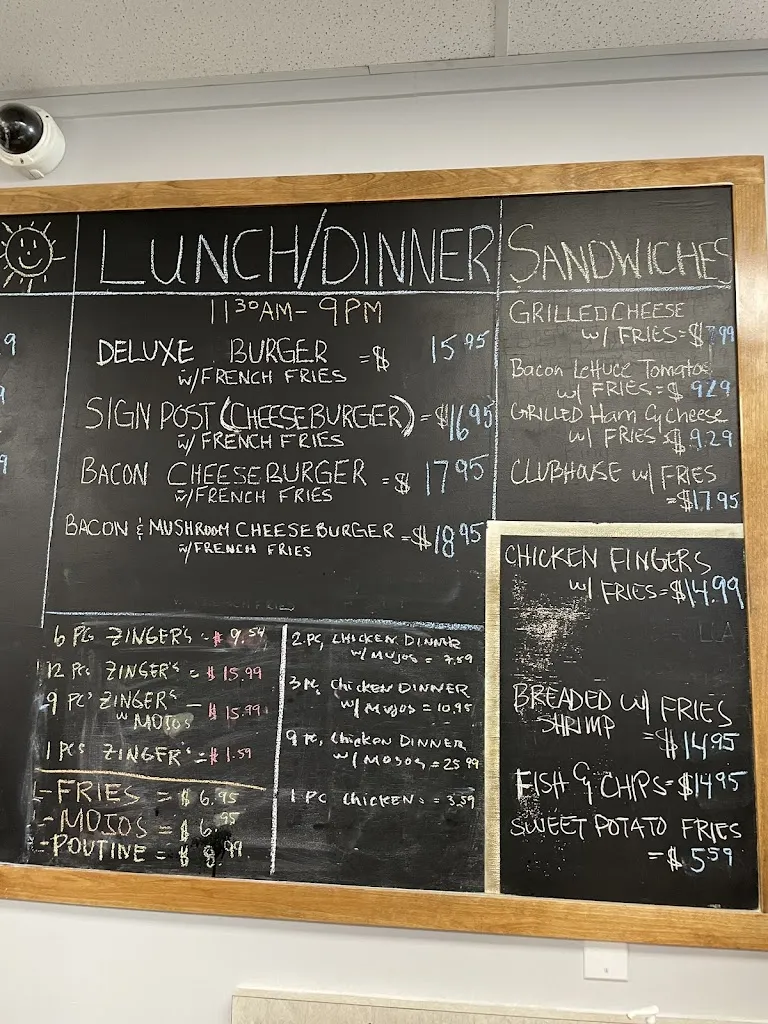 LUNCH/DINNER
11 30 AM - 9 PM
DELUXE BURGER = $ 15 95
W/FRENCH FRIES
SIGN POST (CHEESEBURGER) = $16 95
W/ FRENCH FRIES
BACON CHEESEBURGER = $ 17 95
W/FRENCH FRIES
BACON & MUSHROOM CHEESEBURGER = $18 95
W/FRENCH FRIES
SANDWICHES
GRILLED CHEESE
W/ FRIES = $7 99
Bacon Lettuce Tomatos
W/ FRIES = $ 9 29
GRILLED Ham & Cheese
W/ FRIES $ 9.29
CLUBHOUSE W/ FRIES
= $17.95
CHICKEN FINGERS
W/ FRIES = $14.99
BREADED W/ FRIES
SHRIMP
= $14.95
FISH & CHIPS = $14.95
SWEET POTATO FRIES
= $ 5 59
6 PCS ZINGER'S - $ 9.54
12 PCS ZINGER'S = $ 15.99
9 PC'S ZINGERS
W MOJOS - $ 15.99
1 PCS ZINGER'S = $ 1.59
- FRIES = $ 6.95
- MOJOS = $ 6.95
- POUTINE = $ 8.99
2 PC, CHICKEN DINNER
W/ MOJOS = 7.59
3 PC, Chicken DINNER
W/ MOJOS = 10.95
9 PC, Chicken DINNER
W/ MOJOS = 25 99
1 PC Chicken = 3.59
9
9
9